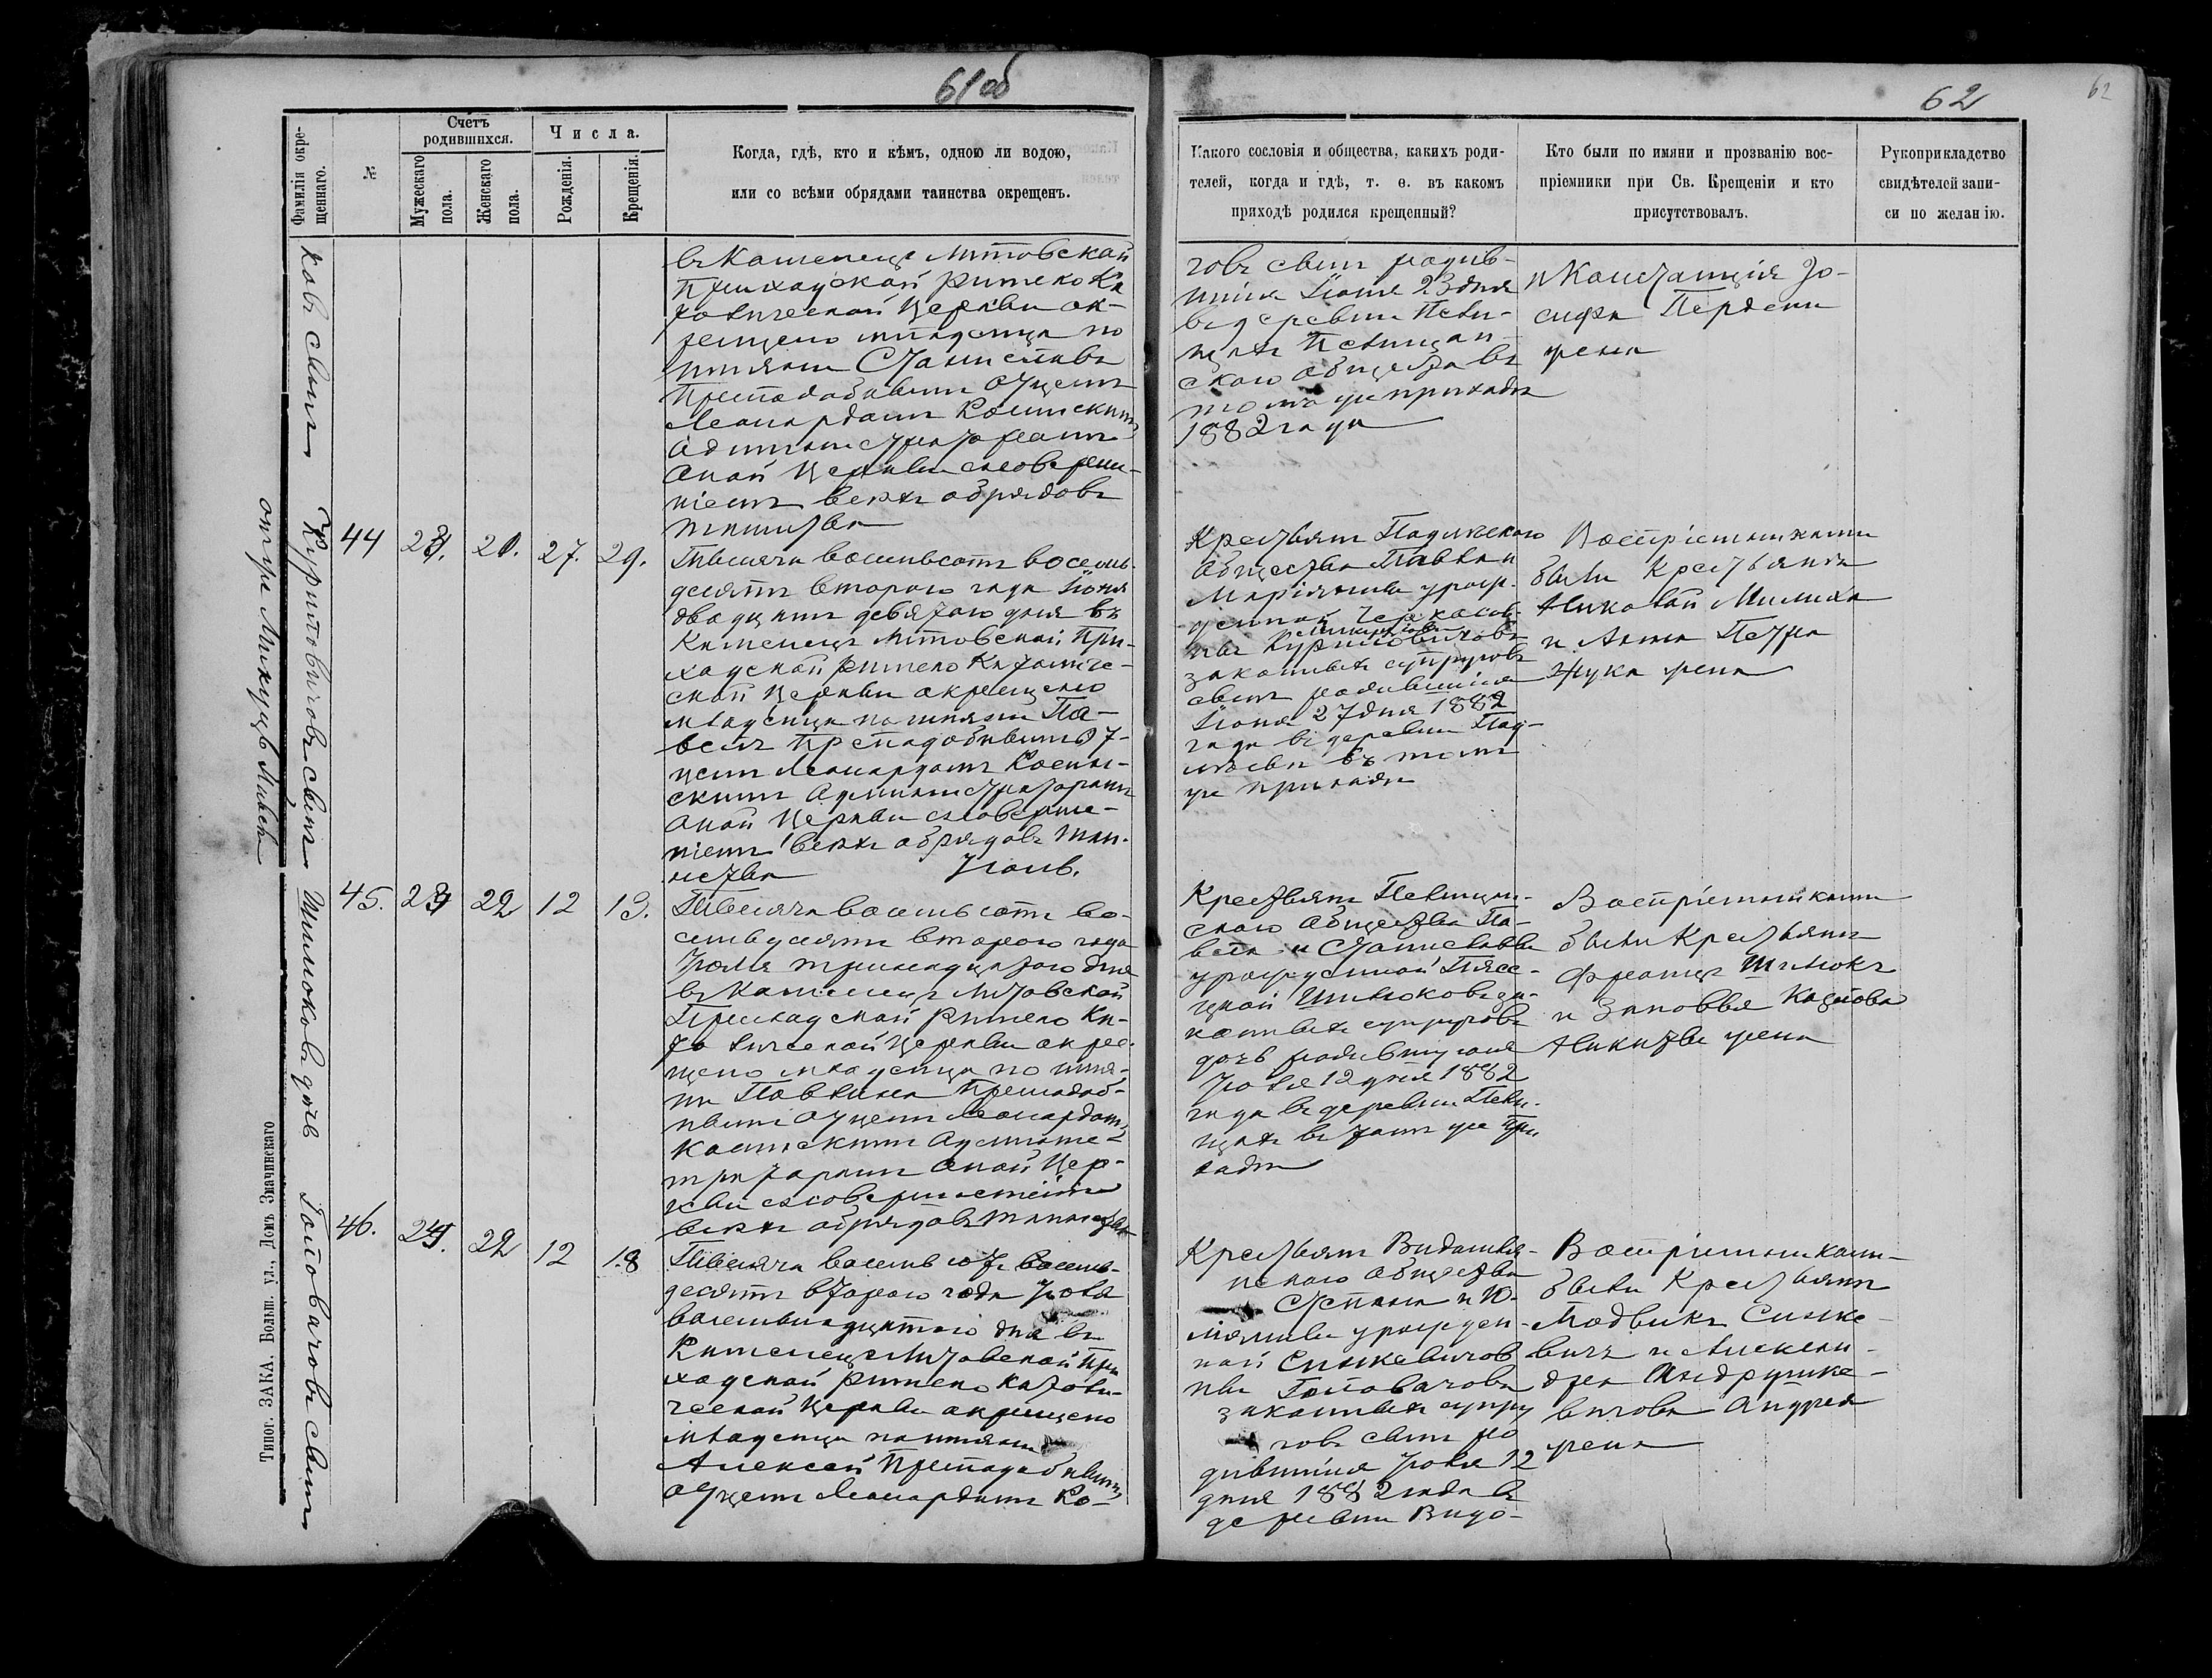 61об
Фамилія окре-
щеннаго.
№
Счетъ
родившихся.
Мужескаго
пола.
Женскаго
пола.
Числа.
Рожденія.
Крещенія.
Когда, гдѣ, кто и кѣмъ, одною ли водою,
или со всѣми обрядами таинства окрещенъ.
ковъ сынъ
въ Каменецъ Литовской
Приходской Римско Ка
толической Церкви ок-
рещенъ младенецъ по
имяни Станиславъ
Преподобнымъ Отцемъ
Леонардомъ
Администраторомъ
оной Церкви с совершен-
ніемъ всехъ обрядовъ
таинства
Куриловичовъ сынъ
отчр Михуцъ Павелъ
44 23. 21. 27. 29.
Тысяча восемьсотъ восемь-
десятъ втораго года Іюня
двадцать девятого дня въ
Каменецъ Литовской При-
ходской Римско Католиче-
ской Церкви окрещенъ
младенецъ по имяни Па-
велъ Преподобнымъ От-
цемъ Леонардомъ
скимъ Администраторомъ
оной Церкви с соверше-
ніемъ всехъ обрядовъ таи-
нства
Іюль.
Шимюковъ дочь
45. 23 22 12 13.
Тысяча восемьсотъ во-
семьдесятъ втораго года
Іюля тринадцатого дня
въ Каменецъ Литовской
Приходской Римско Ка-
толической Церкви окре-
щено младенецъ по имя-
ни Павлина Преподоб-
нымъ Отцемъ Леонардомъ
Админис-
траторомъ оной Цер-
кви с совершеніемъ
всехъ обрядовъ таинства
Головачовъ сынъ
46. 24. 22 12 18
Тысяча восемьсотъ восемь-
десятъ втораго года Іюля
восемьнадцатого дня въ
Каменецъ Литовской При
ходской Римско Католи-
ческой Церкви окрещено
младенецъ по имяни
Алексей Преподобнымъ
Отцемъ Леонардомъ Ко-
Типог. ЗАКА. Больш. ул., Домъ Значинскаго
62
62
Какого сословія и общества, какихъ роди-
телей, когда и гдѣ, т. ѳ. въ какомъ
приходѣ родился крещенный?
Кто были по имяни и прозванію вос-
пріемники при Св. Крещеніи и кто
присутствовалъ.
Рукоприкладство
свидѣтелей запи-
си по желанію.
говъ сынъ родив-
шійся Іюня 23 дня
въ деревни Пели-
щахъ Пелищан-
скаго общества въ
томъ же приходѣ
1882 года
и Констанція Іо-
сифа
жена
Крестьянъ
Общества Павла и
Маріянны урожд-
денной
Куриловичовъ
законныхъ супруговъ
сынъ родившійся
Іюня 27 дня 1882
года въ деревни Под-
въ томъ
же приходѣ
Воспріемниками
были Крестьяне
Николай
и Анна Петра
Жука жена
Крестьянъ Пелищан-
скаго Общества Па-
вла и Станиславы
урожденной
Шимюковъ за-
конныхъ супруговъ
дочь родившуюся
Іюля 12 дня 1882
года въ деревни Пели-
щахъ въ томъ же при
ходѣ
Воспріемниками
были Крестьяне
Францъ Шимюкъ
и Зиновья
Никиты жена
Крестьянъ
скаго Общества
Степана и Ю-
ліянны урожден-
ной Сенкевичовъ
Головачовъ
законныхъ супру
говъ сынъ ро
дившійся Іюля 12
дня 1882 года въ
деревни Видо-
Воспріемниками
были Крестьяне
Людвикъ Сенке-
вичъ и Алексан-
дра Андрушке-
вичовъ Андрея
жена